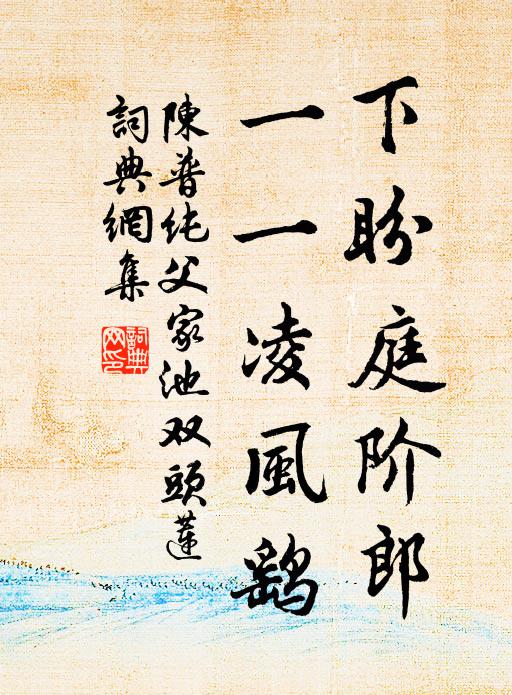 下盼庭阶郎
一一凌風鷂
陳普纯父家池双頭蓮
詞典網集
詞典網印